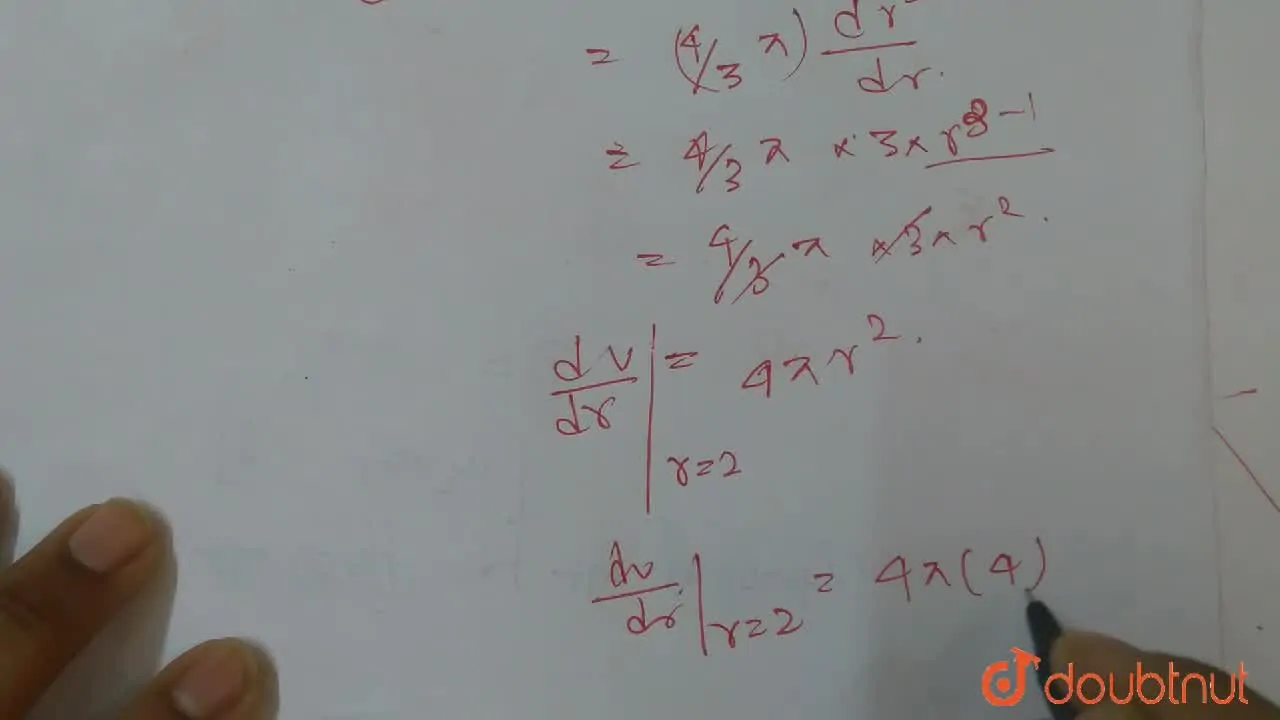 = (4/3 π) dr / dr.
= 4/3 π × 3 × r^3-1
= 4/3 π × 3 × r^2.
dv/dr | r=2 = 4πr^2.
dv/dr | r=2 = 4π(4)
doubtnut